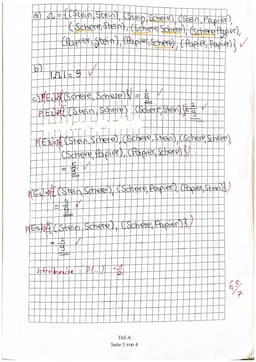 a) Ω = {(Stein, Stein), (Stein, Schere), (Stein, Papier),
(Schere, Stein), (Schere, Schere), (Schere, Papier),
(Papier, Stein), (Papier, Schere), (Papier, Papier)} ✓
b)
|Ω| = 9 ✓
c) P(E1)= {(Schere, Schere)} = 1/9
P(E2)= {(Stein, Schere), (Schere, Stein)}
P(E3)= {(Stein, Schere), (Schere, Stein), (Schere, Schere),
(Schere, Papier), (Papier, Schere)}
= 5/9
{(Stein, Schere), (Schere, Papier), (Papier, Stein)}
{(Stein, Schere), (Schere, Papier)}
Schreibweise P(...)
Teil A
Seite 3 von 4